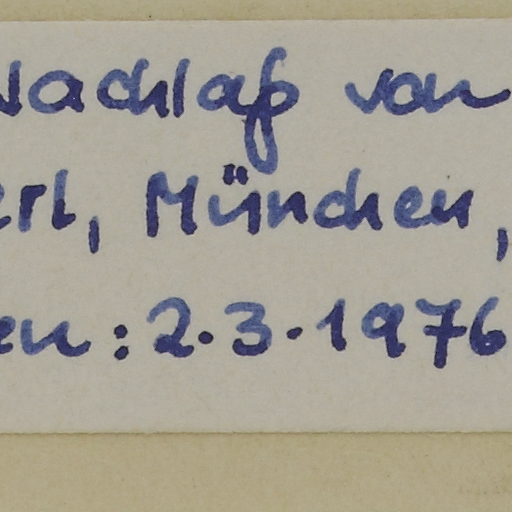 Nachlaß von
erl, München,
en: 2.3.1976